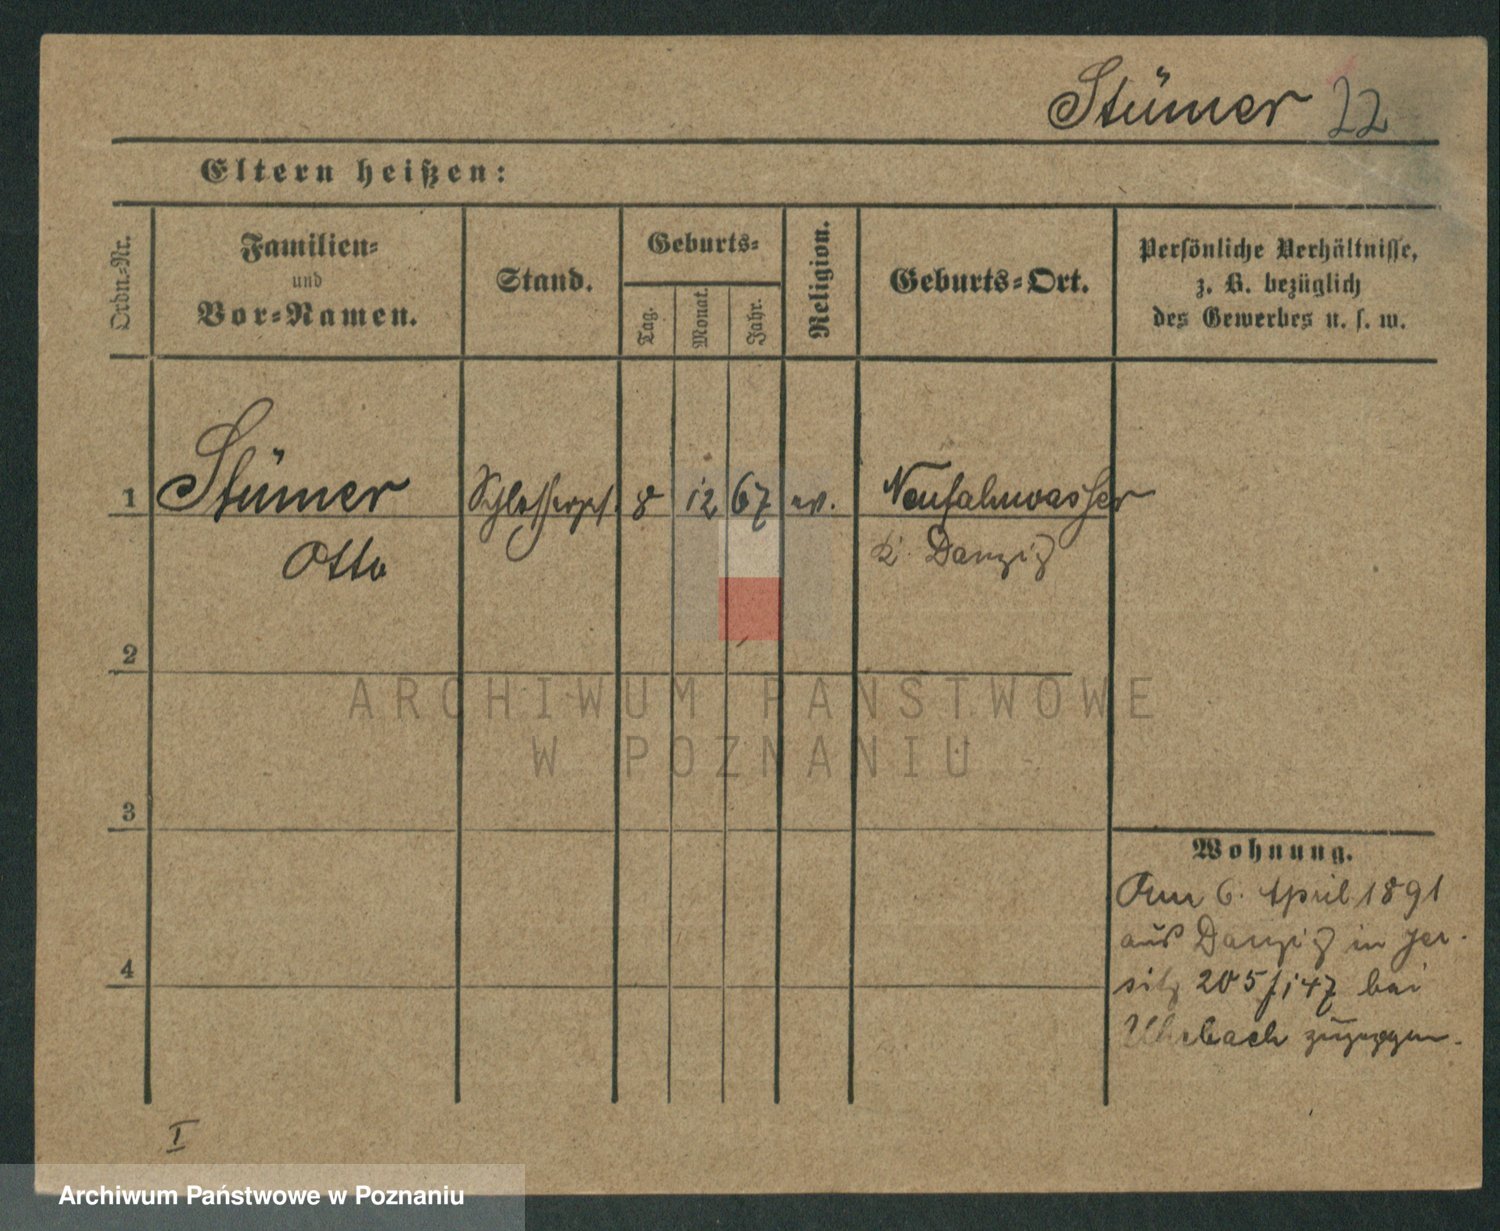 Stümer 22
Eltern heißen:
Ordn.-Nr.
Familien-
und
Vor-Namen.
Stand.
Geburts-
Tag.
Monat.
Jahr.
Religion.
Geburts-Ort.
Persönliche Verhältnisse,
z. B. bezüglich
des Gewerbes u. s. w.
1 Stümer Schlosserges. 8 12 67 ev. Neufahrwasser
Otto K. Danzig
2
3
4
ARCHIWUM PAŃSTWOWE
W POZNANIU
Wohnung.
Am 6. April 1891
aus Danzig in Jer-
sitz 205/147 bei
zugezogen.
I
Archiwum Państwowe w Poznaniu